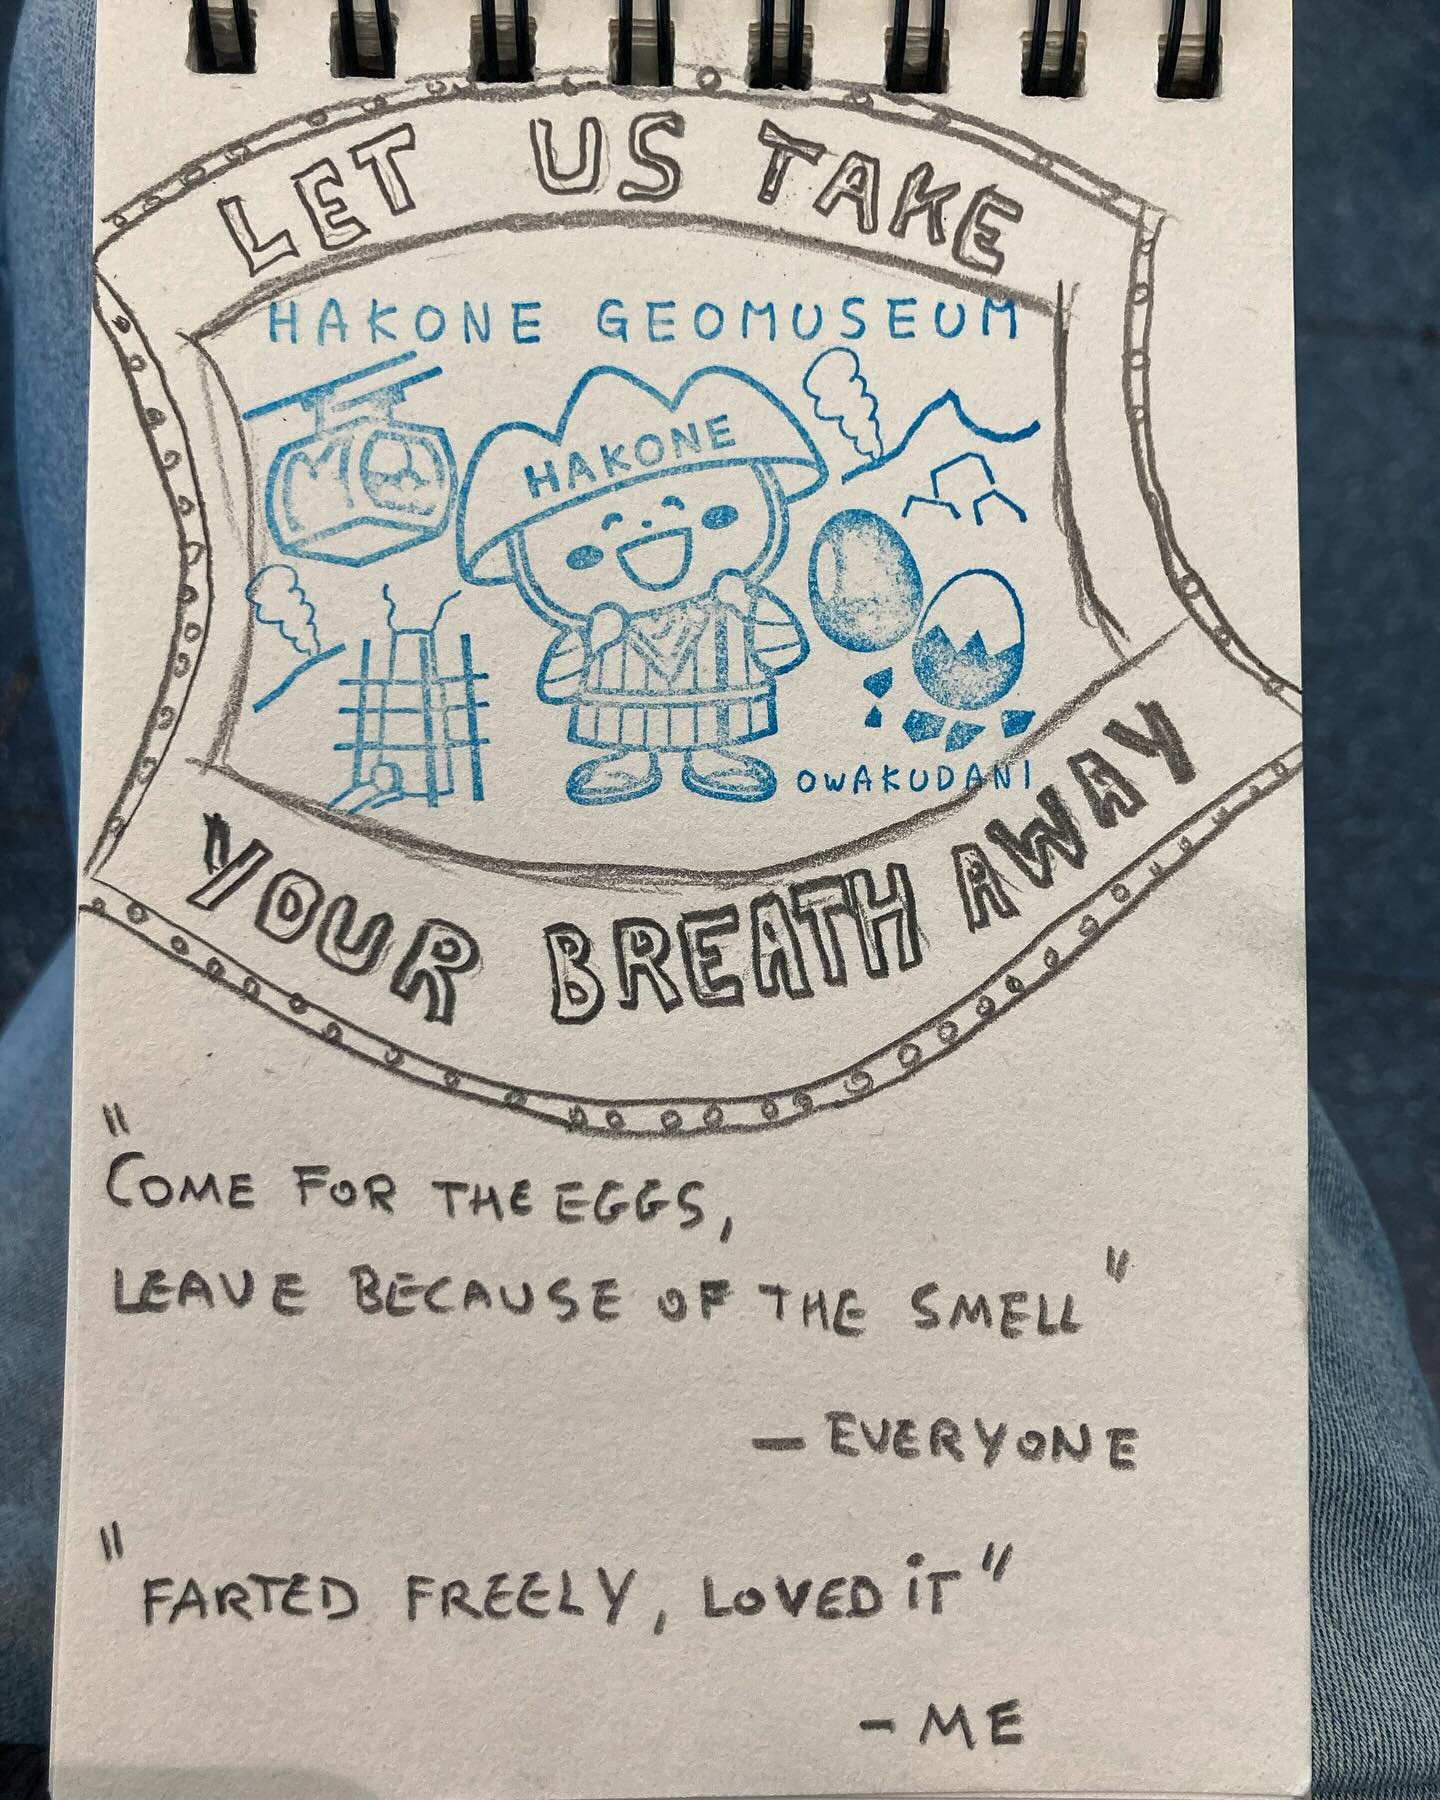 LET US TAKE
HAKONE GEOMUSEUM
HAKONE
OWAKUDANI
YOUR BREATH AWAY
"COME FOR THE EGGS,
LEAVE BECAUSE OF THE SMELL"
— EVERYONE
"FARTED FREELY, LOVED IT"
- ME